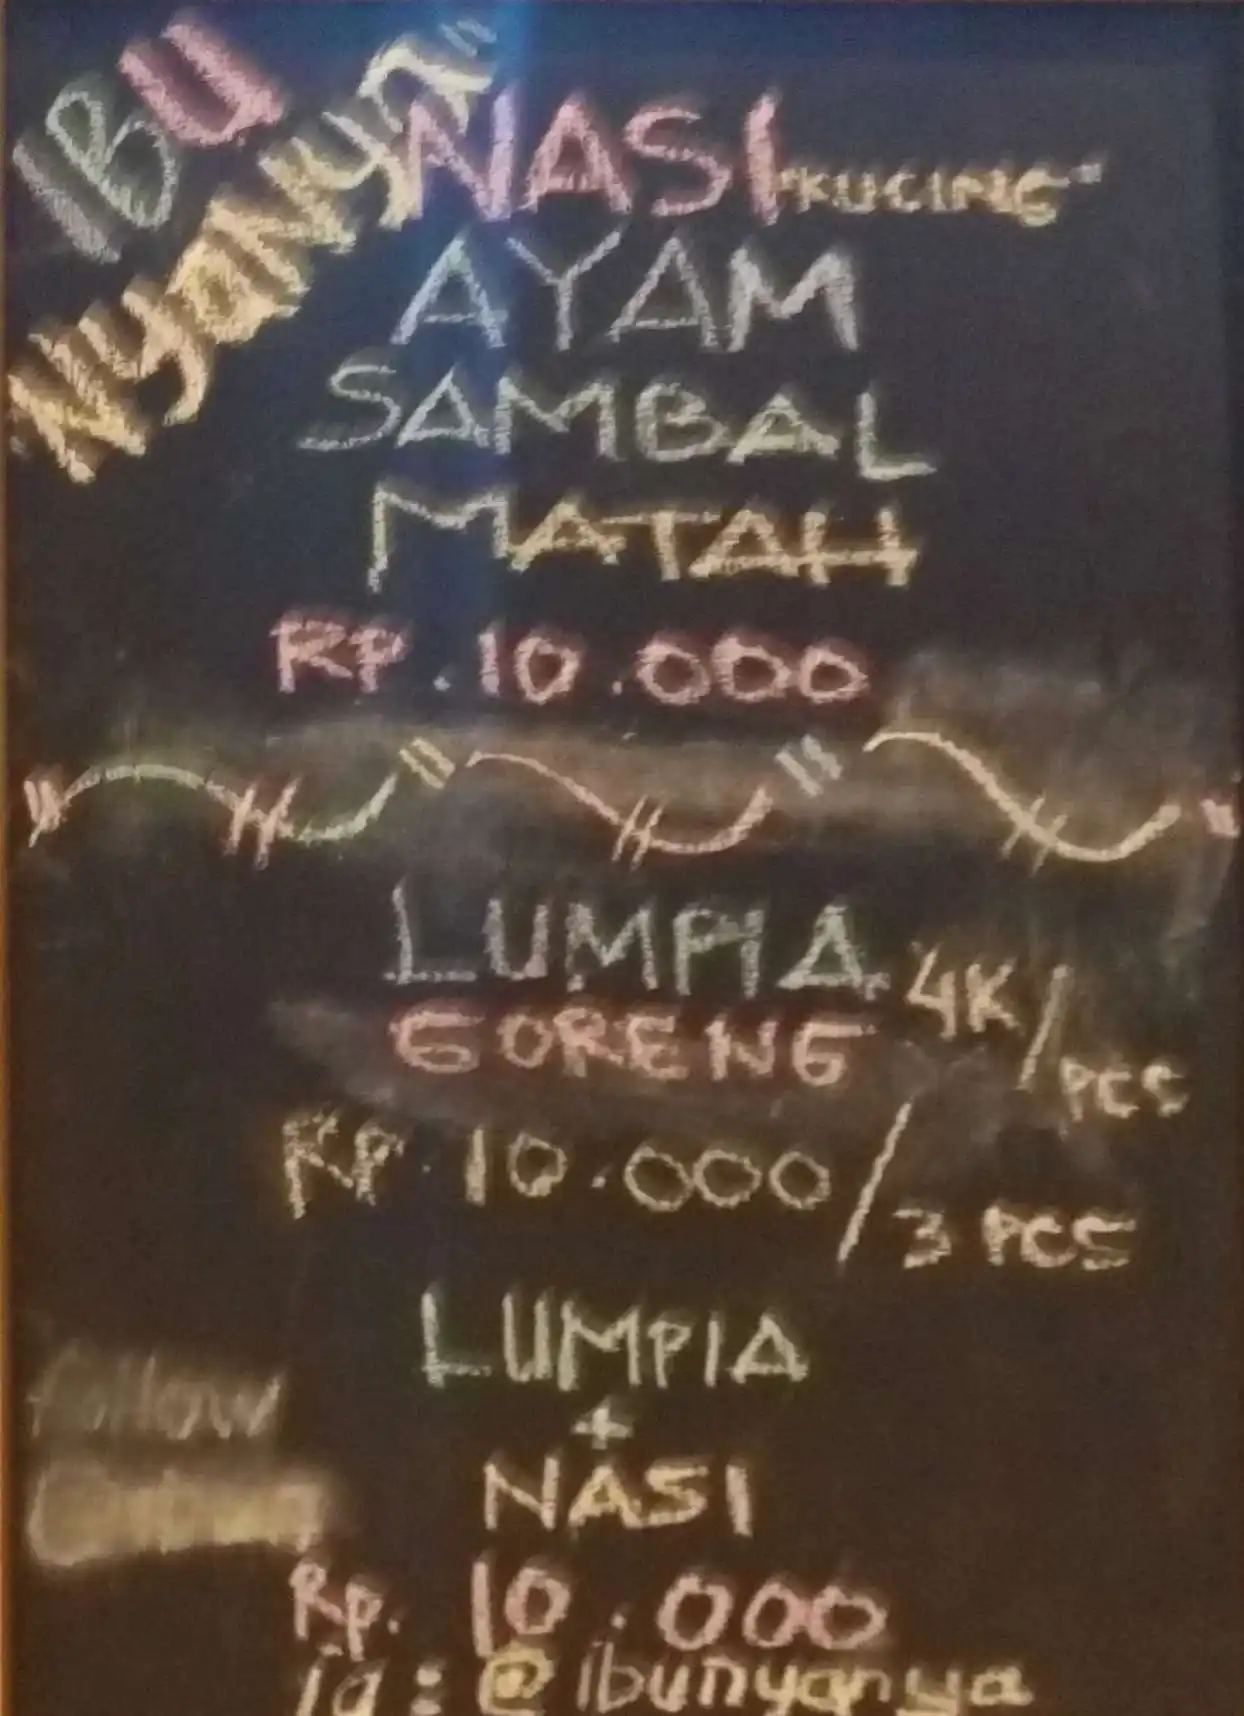 IBU
NyaNya"
NASI "KUCING"
AYAM
SAMBAL
MATAH
RP.10.000
LUMPIA 4K/PCS
GORENG
RP.10.000/3 PCS
LUMPIA
+
NASI
follow
Rp. 10.000
ig : @ibunyanya